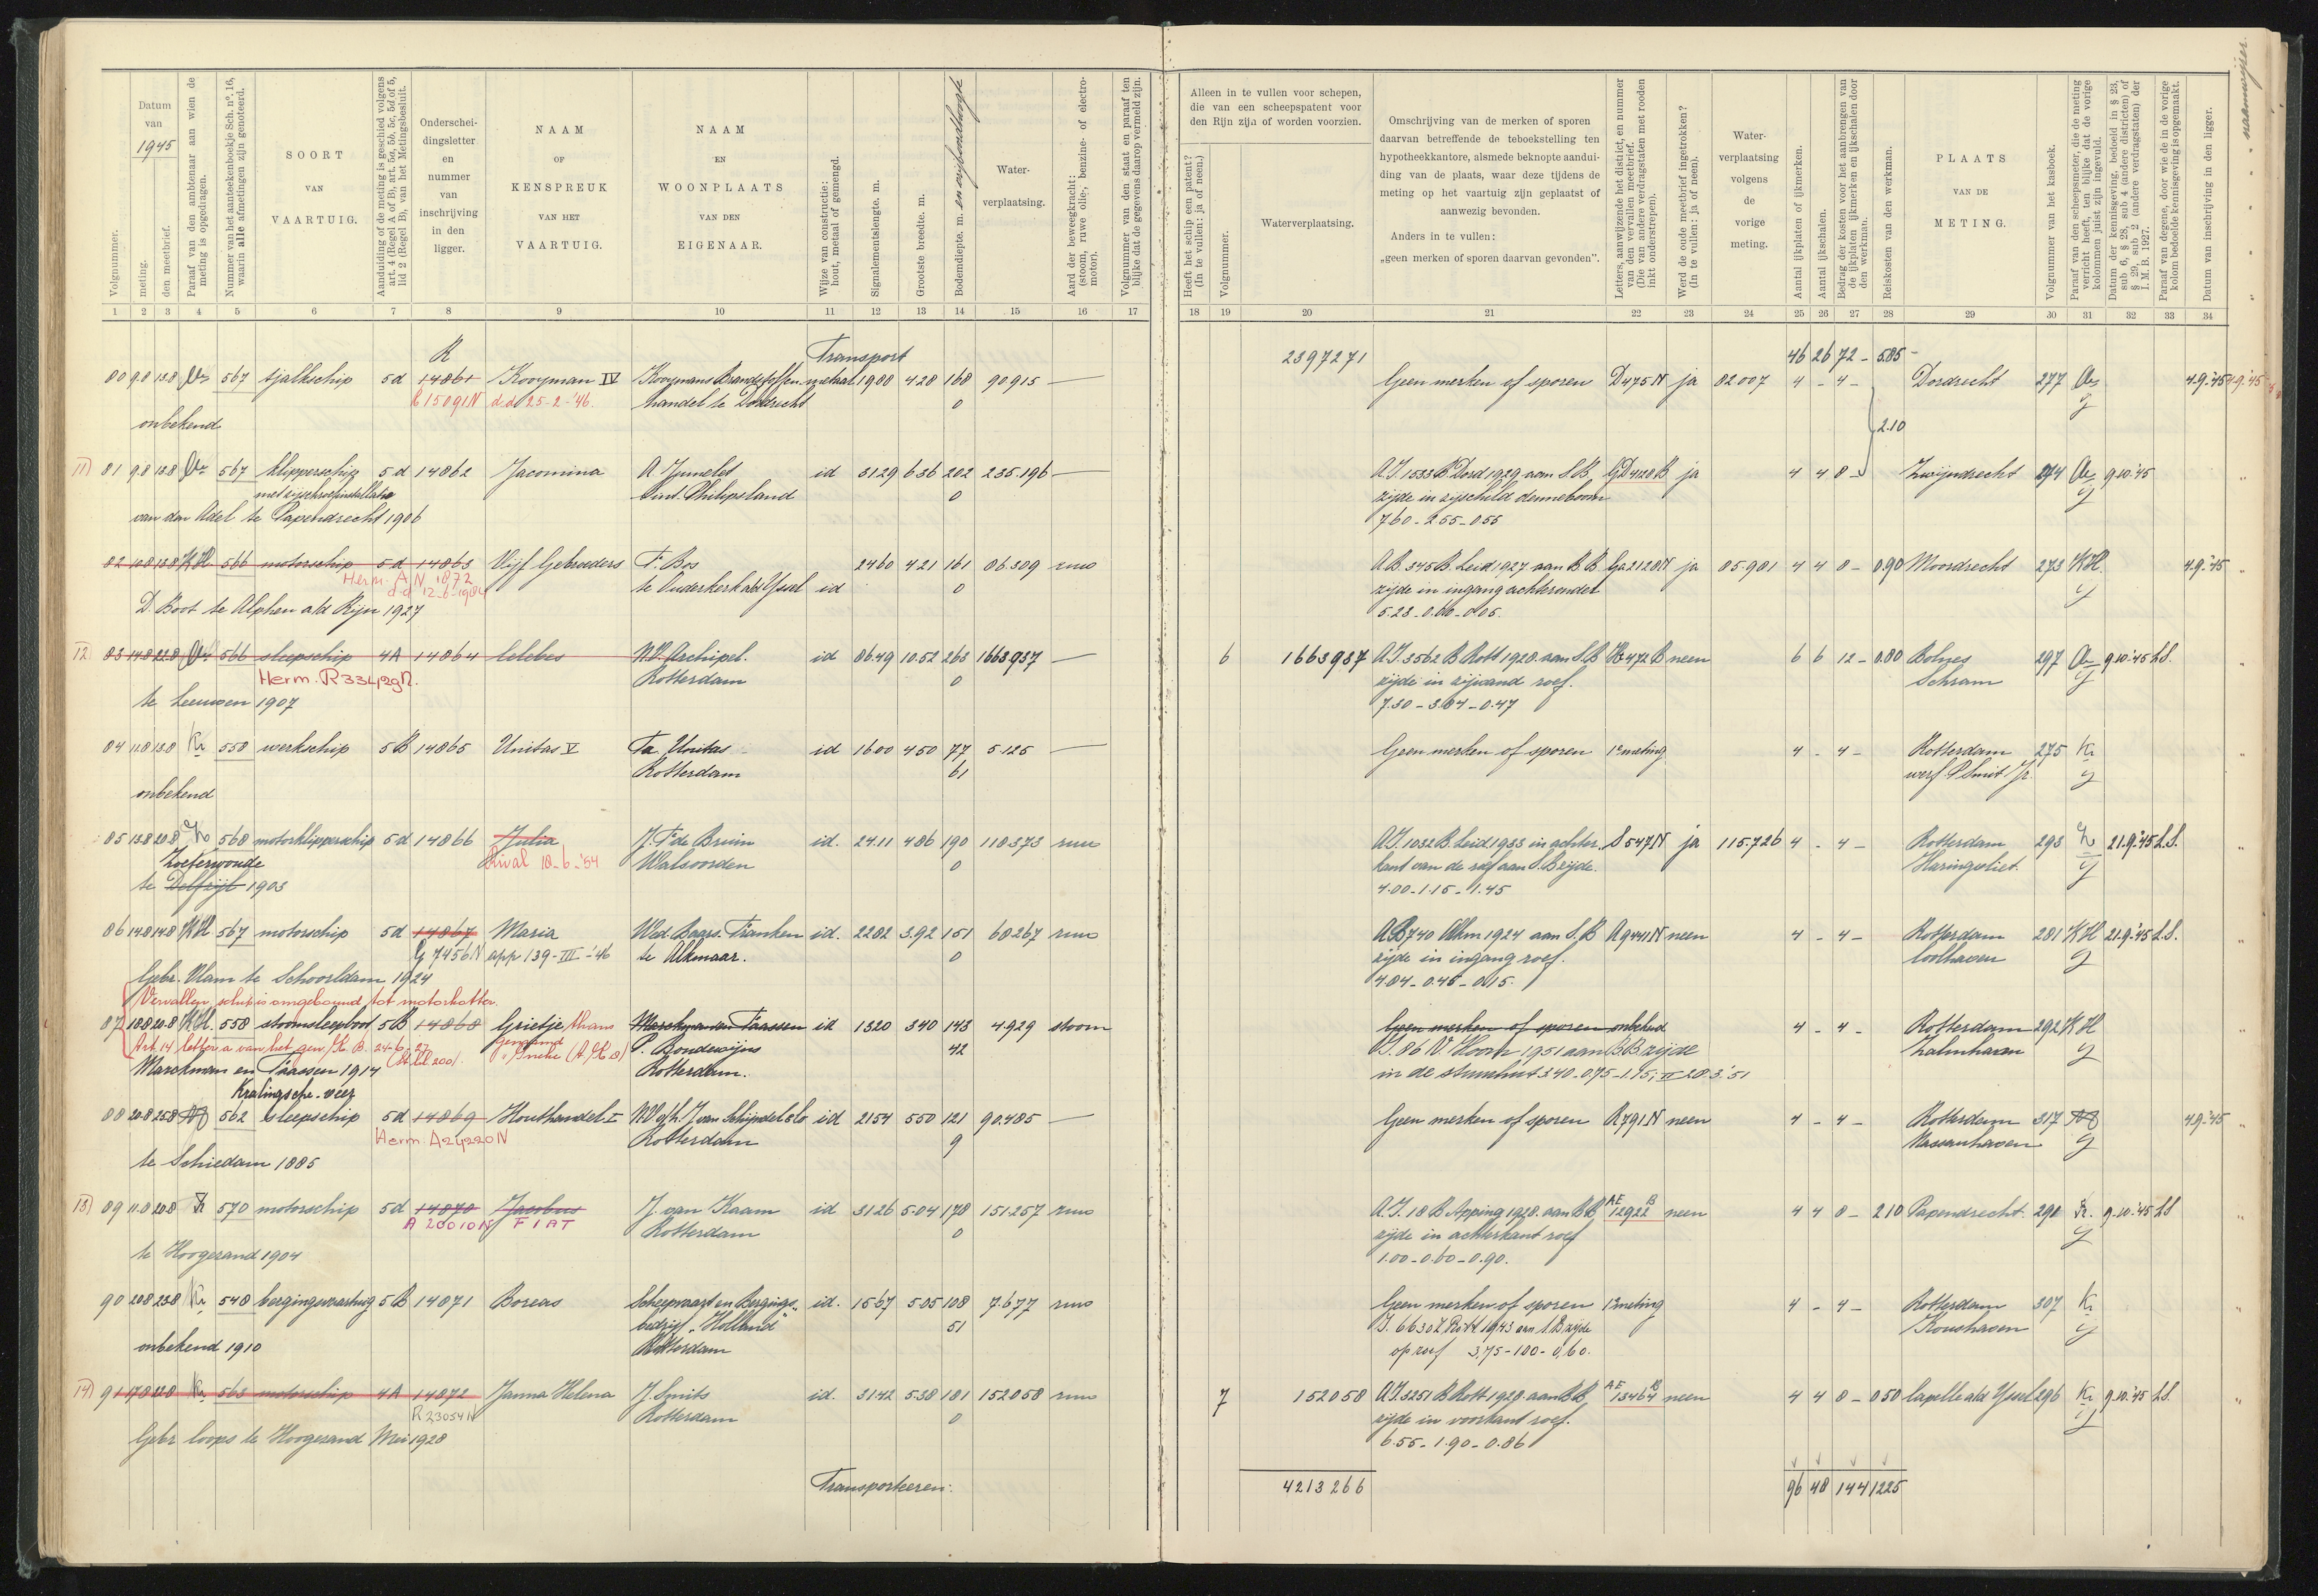 Datum
van
1945
meting.
den meetbrief.
Volgnummer.
Paraaf van den ambtenaar aan wien de meting is opgedragen.
Nummer van het aanteekenboekje Sch. nº. 16, waarin alle afmetingen zijn genoteerd.
SOORT
VAN
VAARTUIG.
Aanduiding of de meting is geschied volgens art. 4 (Regel A of B), art. 5a, 5b, 5c, 5d of 5, lid 2 (Regel B), van het Metingsbesluit.
Onderschei-
dingsletter
en
nummer
van
inschrijving
in den
ligger.
NAAM
OF
KENSPREUK
VAN HET
VAARTUIG.
NAAM
EN
WOONPLAATS
VAN DEN
EIGENAAR.
Wijze van constructie: hout, metaal of gemengd.
Signalementslengte. m.
Grootste breedte. m.
Bodemdiepte. m. en vrijboordhoogte
Water-
verplaatsing.
Aard der beweegkracht: (stoom, ruwe olie-, benzine- of electro-motor).
Volgnummer van den staat en paraaf ten blijke dat de gegevens daarop vermeld zijn.
Alleen in te vullen voor schepen,
die van een scheepspatent voor
den Rijn zijn of worden voorzien.
Heeft het schip een patent? (In te vullen: ja of neen.)
Volgnummer.
Waterverplaatsing.
Omschrijving van de merken of sporen
daarvan betreffende de teboekstelling ten
hypotheekkantore, alsmede beknopte aandui-
ding van de plaats, waar deze tijdens de
meting op het vaartuig zijn geplaatst of
aanwezig bevonden.
Anders in te vullen:
„geen merken of sporen daarvan gevonden".
Letters, aanwijzende het district, en nummer van den vervallen meetbrief. (Die van andere verdragstaten met rooden inkt onderstrepen).
Werd de oude meetbrief ingetrokken? (In te vullen: ja of neen).
Water-
verplaatsing
volgens
de
vorige
meting.
Aantal ijkplaten of ijkmerken.
Aantal ijkschalen.
Bedrag der kosten voor het aanbrengen van de ijkplaten ijkmerken en ijkschalen door den werkman.
Reiskosten van den werkman.
PLAATS
VAN DE
METING.
Volgnummer van het kasboek.
Paraaf van den scheepsmeter, die de meting verricht heeft, ten blijke dat de vorige kolommen juist zijn ingevuld.
Datum der kennisgeving, bedoeld in § 23, sub 6, § 28, sub 4 (andere districten) of § 29, sub 2 (andere verdragstaten) der I. M. B. 1927.
Paraaf van degene, door wie de in de vorige kolom bedoelde kennisgeving is opgemaakt.
Datum van inschrijving in den ligger.
1 2 3 4 5 6 7 8 9 10 11 12 13 14 15 16 17 18 19 20 21 22 23 24 25 26 27 28 29 30 31 32 33 34
R Transport 2397271 46 26 72 - 5.85
80 9.8 13.8 567 tjalkschip 5d 14861 Kooyman IV Kooymans Brandstoffen metaal 19.00 4.28 168 90.915 — Geen merken of sporen D475N ja 82.007 4 - 4 - Dordrecht 277 4.9.'45 4.9.'45
R 15091N d.d. 25-2-'46. handel te Dordrecht 0
onbekend 2.10
11) 81 9.8 13.8 567 klipperschip 5d 14862 Jacomina A Jumelet id 31.29 6.36 202 235.196 — A.J. 1533 B Dord 1929 aan S.B. GD4120B ja 4 4 8 - Zwijndrecht 274 9.10.'45 "
met zijschroefinstallatie Sint Philipsland 0 zijde in zijschild denneboom
van den Adel te Papendrecht 1906 7.60 - 2.55 - 0.55
82 10.8 13.8 KH 566 motorschip 5d 14863 Vijf Gebroeders F. Bos 24.60 4.21 161 86.309 rmo A.B. 345 B. Leid 1927 aan B.B. Ga2120N ja 85.981 4 4 8 - 0.90 Moordrecht 273 KH 4.9.'45 "
Herm. AN 1872 te Ouderkerk a/d IJssel id 0 zijde in ingang achteronder
d.d. 12-6-1984
D. Boot te Alphen a/d Rijn 1927 5.23 - 0.60 - 0.05.
12 83 14.8 22.8 566 sleepschip 4A 14864 Celebes N.V. Archipel. id 86.49 10.52 263 1663.937 — 6 1663937 A.J. 3562 B Rott 1928 aan S.B. 472B neen 6 6 12 - 0.80 Bolnes 297 9.10.'45 L.S. "
Herm. R33429N. Rotterdam 0 zijde in zijwand roef. Schram
te Leeuwen 1907 7.30 - 3.04 - 0.47
84 11.8 13.8 Kr 558 werkschip 5B 14865 Unitas V Fa. Unitas id 16.00 4.50 77 5.125 — Geen merken of sporen 1e meting 4 - 4 - Rotterdam 275 Kr "
Rotterdam 61 werf P. Smit Jr.
onbekend
85 13.8 20.8 568 motorklipperschip 5d 14866 Julia J. F. de Bruin id. 24.11 4.86 190 118.373 rmo A.J. 1032 B. Leid 1933 in achter- S547N ja 115.726 4 - 4 - Rotterdam 293 21.9.'45 L.S. "
Zoeterwoude Rival 18-6-'54 Walsoorden 0 kant van de roef aan S.B. zijde. Haringvliet.
te Delfzijl 1903 4.00 - 1.15 - 1.45
86 14.8 14.8 KH 567 motorschip 5d 14867 Maria Wed. Baars-Franken id. 22.82 3.92 151 68.267 rmo A.B. 740 Alkm 1924 aan S.B. A9441N neen 4 - 4 - Rotterdam 281 KH 21.9.'45 L.S. "
G 7456N app 139-III-'46 te Alkmaar. 0 zijde in ingang roef. Coolhaven
Gebr. Vlam te Schoorldam 1924 4.84 - 0.45 - 0.15.
Vervallen, schip is omgebouwd tot motorkotter.
87 18.8 20.8 KH. 558 stoomsleepboot 5B 14868 Grietje thans Marckman en Taassen id 13.20 3.40 143 4.929 stoom Geen merken of sporen onbekend 4 - 4 - Rotterdam 292 KH
Art. 14 letter a van het gew. K.B. 24-6-27 genaamd P. Boudewijns 42 J. 86 V Hoorn 1951 aan B.B. zijde Zalmhaven
Marckman en Taassen 1914 Rotterdam. in de stuurhut 3.40 - 0.75 - 1.15; 20.3.'51
Kralingsche-veer
88 20.8 25.8 562 sleepschip 5d 14869 Houthandel I N.V. v/h. J. van Schijndel & Co id 21.54 5.50 121 90.485 — Geen merken of sporen R791N neen 4 - 4 - Rotterdam 317 4.9.'45 "
Herm. A24220N Rotterdam 9 Nassauhaven
te Schiedam 1885
13) 89 11.8 20.8 570 motorschip 5d 14870 Jacobus J. van Kaam id 31.26 5.04 178 151.257 rmo A.J. 18 B Apping 1928. aan B.B. AE 12922 B neen 4 4 8 - 2.10 Papendrecht. 291 9.10.'45 L.S "
A 20010N FIAT Rotterdam 0 zijde in achterkant roef
te Hoogezand 1904 1.00 - 0.60 - 0.90.
90 20.8 23.8 Kr 548 bergingsvaartuig 5B 14871 Boreas Scheepvaart en Bergings- id. 15.67 5.05 108 7.677 rmo Geen merken of sporen 1e meting 4 - 4 - Rotterdam 307 Kr "
bedrijf „Holland" 51 J. 6630 Z Rott 1943 aan S.B. zijde
onbekend 1910 Rotterdam op roef 3,75 - 1.00 - 0,60.
14) 91 17.8 22.8 Kr 563 motorschip 4A 14872 Janna Helena J. Smits id. 31.42 5.38 181 152.058 rmo 7 152058 A.J. 3251 B Rott 1928. aan B.B. AE 13464 B neen 4 4 8 - 0.50 Capelle a/d IJssel 296 Kr 9.10.'45 L.S. "
R 23054N Rotterdam 0 zijde in voorkant roef.
Gebr Coops te Hoogezand Mei 1928 6.55 - 1.90 - 0.86
Transporteeren: 4213266 96 48 144 1225